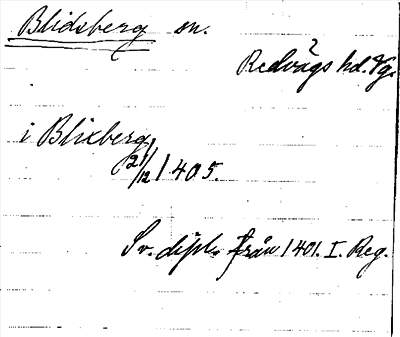 Blidsberg sn.
Redvägs hd. Vg.
i Blixberg
21/12 1405.
Sv. dipl. från 1401. I. Reg.